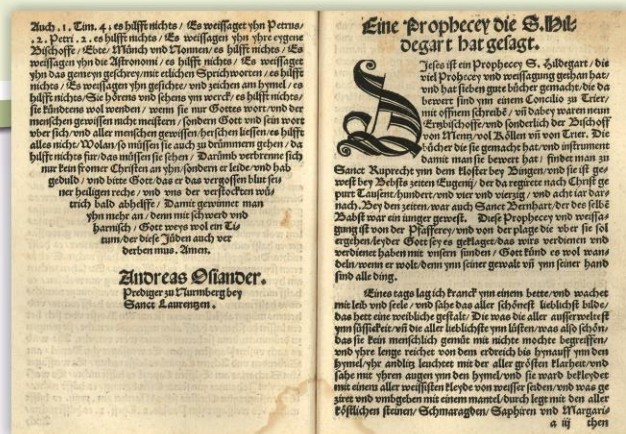 Auch .1. Tim. 4. es hilfft nichts / Es weissaget yhn Petrus /
.2. Petri .2. es hilfft nichts / Es weissagen yhn yhre eygene
Bischoffe / Ebte / Münch vnd Nonnen / es hilfft nichts / Es
weissagen yhn die Astronomi / es hilfft nichts / Es weissaget
yhn das gemeyn geschrey / mit etlichen Sprichworten / es hilfft
nichts / Es weissagen yhn gesichte / vnd zeichen am hymel / es
hilfft nichts / Sie hörens vnd sehens yns werck / es hilfft nichts /
sie kündens wol wenden / wenn sie nur Gottes wort / vnd der
menschen gewissen nicht meistern / sondern Gott vnd sein wort
vber sich / vnd aller menschen gewissen / herschen liessen / es hilfft
alles nicht / Wolan / so müssen sie auch zu drümmern gehen / da
hilfft nichts für / das müssen sie sehen / Darumb verbrenne sich
nur kein fromer Christen an yhn / sondern er leide / vnd hab
gedult / vnd bitte Gott / das er das vergossen blut sei-
ner heiligen reche / vnd vns der verstockten wü-
trich bald abhelffe / Damit gewinnet man
yhn mehr an / denn mit schwerd vnd
harnisch / Gott weys wol ein Ti-
tum / der diese Jüden auch ver
derben mus. Amen.
Andreas Osiander.
Prediger zu Nurmberg bey
Sanct Laurentzen.
Eine Prophecey die S. Hil-
degart hat gesagt.
Dieses ist ein Prophecey S. Hildegart / die
viel Prohecey vnd weissagung gethan hat /
vnd hat sieben gute bücher gemacht / die da
bewert sind ynn einem Concilio zu Trier /
mit offnem schreibē / vñ dabey waren neun
Ertzbischoffe / vnd sonderlich der Bischoff
von Mentz / vol Köllen vñ von Trier. Die
bücher die sie gemacht hat / vnd instrument
damit man sie bewert hat / findet man zu
Sanct Ruprecht ynn dem kloster bey Bingen / vnd sie ist ge-
west bey Bebsts zeiten Eugenij / der da regirete nach Christ ge
purt Tausent / hundert / vnd vier vnd vierzig / vnd acht iar dar-
nach. Bey den zeiten / war auch Sanct Bernhart / der des selbē
Babst war ein iunger gewest. Diese Prophecey vnd weissa-
gung ist von der Pfafferey / vnd von der plage die vber sie sol
ergehen / leyder Gott sey es geklaget / das wirs verdienen vnd
verdienet haben mit vnsern sunden / Gott künd es wol wan-
deln / wenn er wolt / denn ynn seiner gewalt vñ ynn seiner hand
sind alle ding.
Eines tags lag ich kranck ynn einem bette / vnd wachet
mit leib vnd seele / vnd sahe das aller schönest lieblichst bilde /
das hett eine weibliche gestalt / Die was die aller ausserweltest
ynn süssickeit / vñ die aller lieblichste ynn lüsten / was also schön /
das sie kein menschlich gemüt mit nichte mochte begreiffen /
vnd yhre lenge reichet von dem erdreich bis hynauff ynn den
hymel / yhr andlitz leuchtet mit der aller grösten klarheit / vnd
sahe mit yhren augen ynn den hymel / vnd sie ward bekleydet
mit einem aller weissisten kleyde von weisser seiden / vnd was ge
ziret vnd vmbgeben mit einem mantel / durch legt mit den aller
köstlichen steinen / Schmaragden / Saphiren vnd Margaris
a iij then